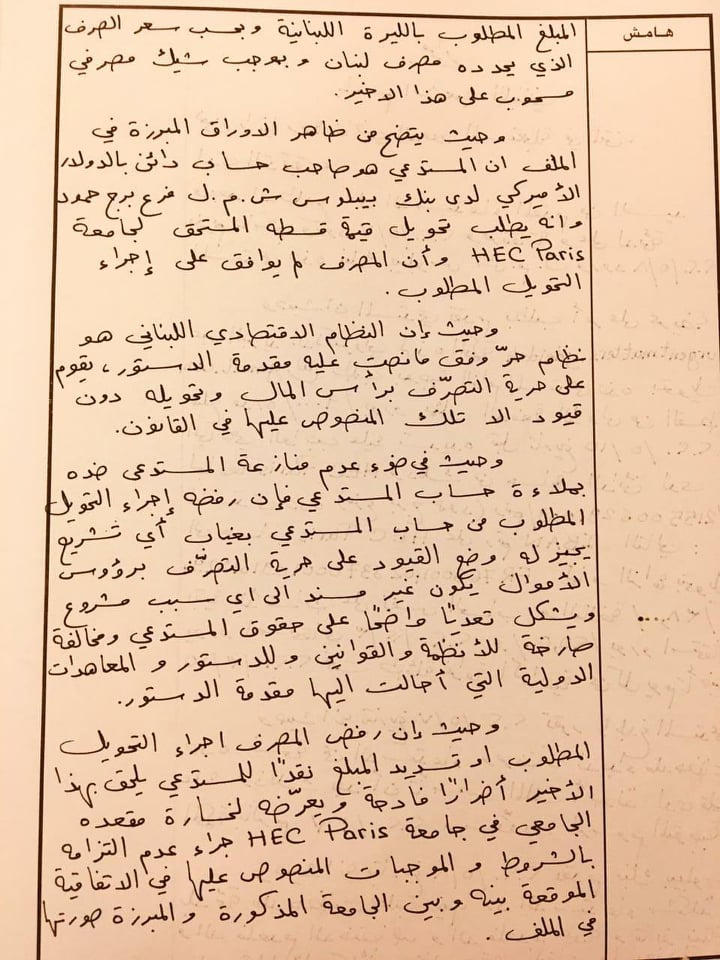 هامش
المبلغ المطلوب بالليرة اللبنانية وبحسب سعر الصرف
الذي يحدده مصرف لبنان وبموجب شيك مصرفي
مسحوب على هذا الاخير.
وحيث يتضح من ظاهر الاوراق المبرزة في
الملف ان المستدعي هو صاحب حساب دائن بالدولار
الأميركي لدى بنك بيبلوس ش.م.ل فرع برج حمود
وانه يطلب تحويل قيمة قسطه المستحق لجامعة
HEC Paris وأن المصرف لم يوافق على إجراء
التحويل المطلوب.
وحيث إن النظام الاقتصادي اللبناني هو
نظام حرّ وفق ما نصت عليه مقدمة الدستور، يقوم
على حرية التصرّف برأس المال وتحويله دون
قيود الا تلك المنصوص عليها في القانون.
وحيث في ضوء عدم منازعة المستدعى ضده
بملاءة حساب المستدعي فإن رفضه إجراء التحويل
المطلوب من حساب المستدعي بغياب أي تشريع
يجيز له وضع القيود على حرية التصرّف برؤوس
الأموال يكون غير مسند الى اي سبب مشروع
ويشكل تعديًا واضحًا على حقوق المستدعي ومخالفة
صارخة للأنظمة والقوانين وللدستور والمعاهدات
الدولية التي أحالت اليها مقدمة الدستور.
وحيث إن رفض المصرف اجراء التحويل
المطلوب او تسديد المبلغ نقدًا للمستدعي يلحق بهذا
الأخير أضرارًا فادحة ويعرّضه لخسارة مقعده
الجامعي في جامعة HEC Paris جراء عدم التزامه
بالشروط والموجبات المنصوص عليها في الاتفاقية
الموقعة بينه وبين الجامعة المذكورة والمبرزة صورتها
في الملف.